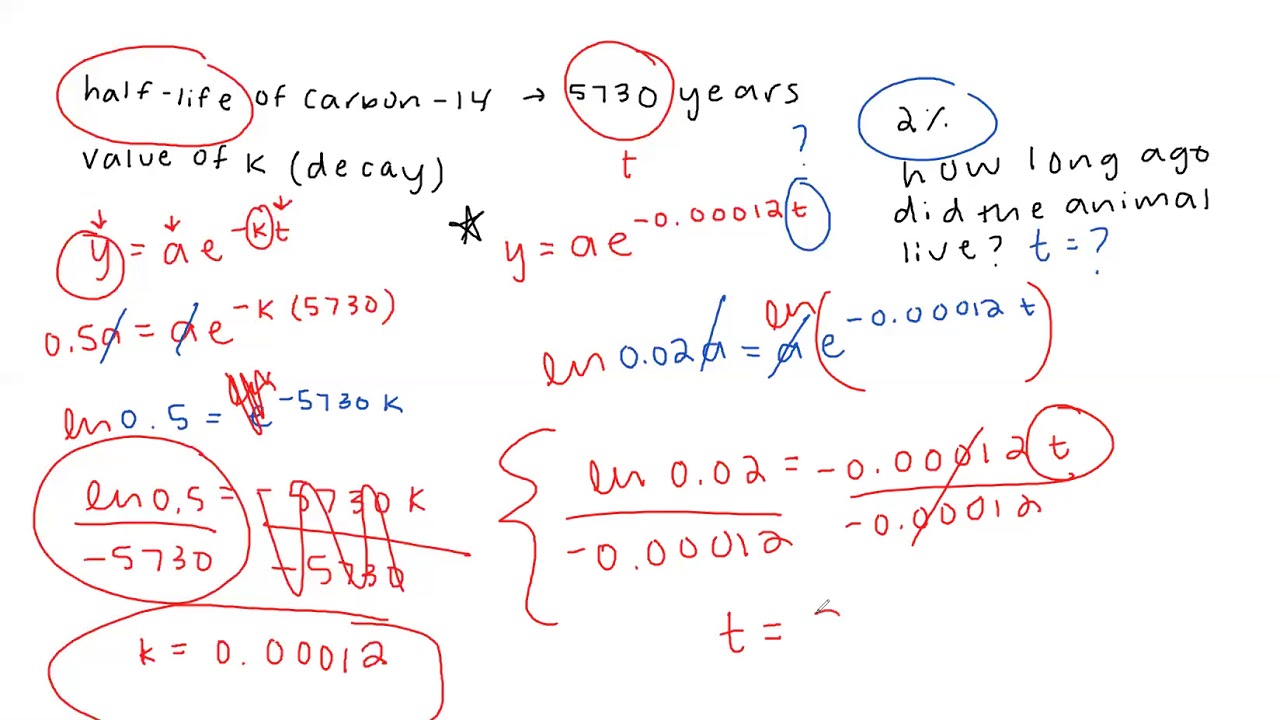 half-life of carbon-14 → 5730 years
value of k (decay)
t
?
y = ae^-kt
0.5a = ae^-k(5730)
ln 0.5 = e^-5730k
ln 0.5 = -5730k
-5730 -5730
k = 0.00012
2%
how long ago
did the animal
live? t = ?
y = ae^-0.00012t
ln 0.02a = a ln(e^-0.00012t)
ln 0.02 = -0.00012t
-0.00012 -0.00012
t =